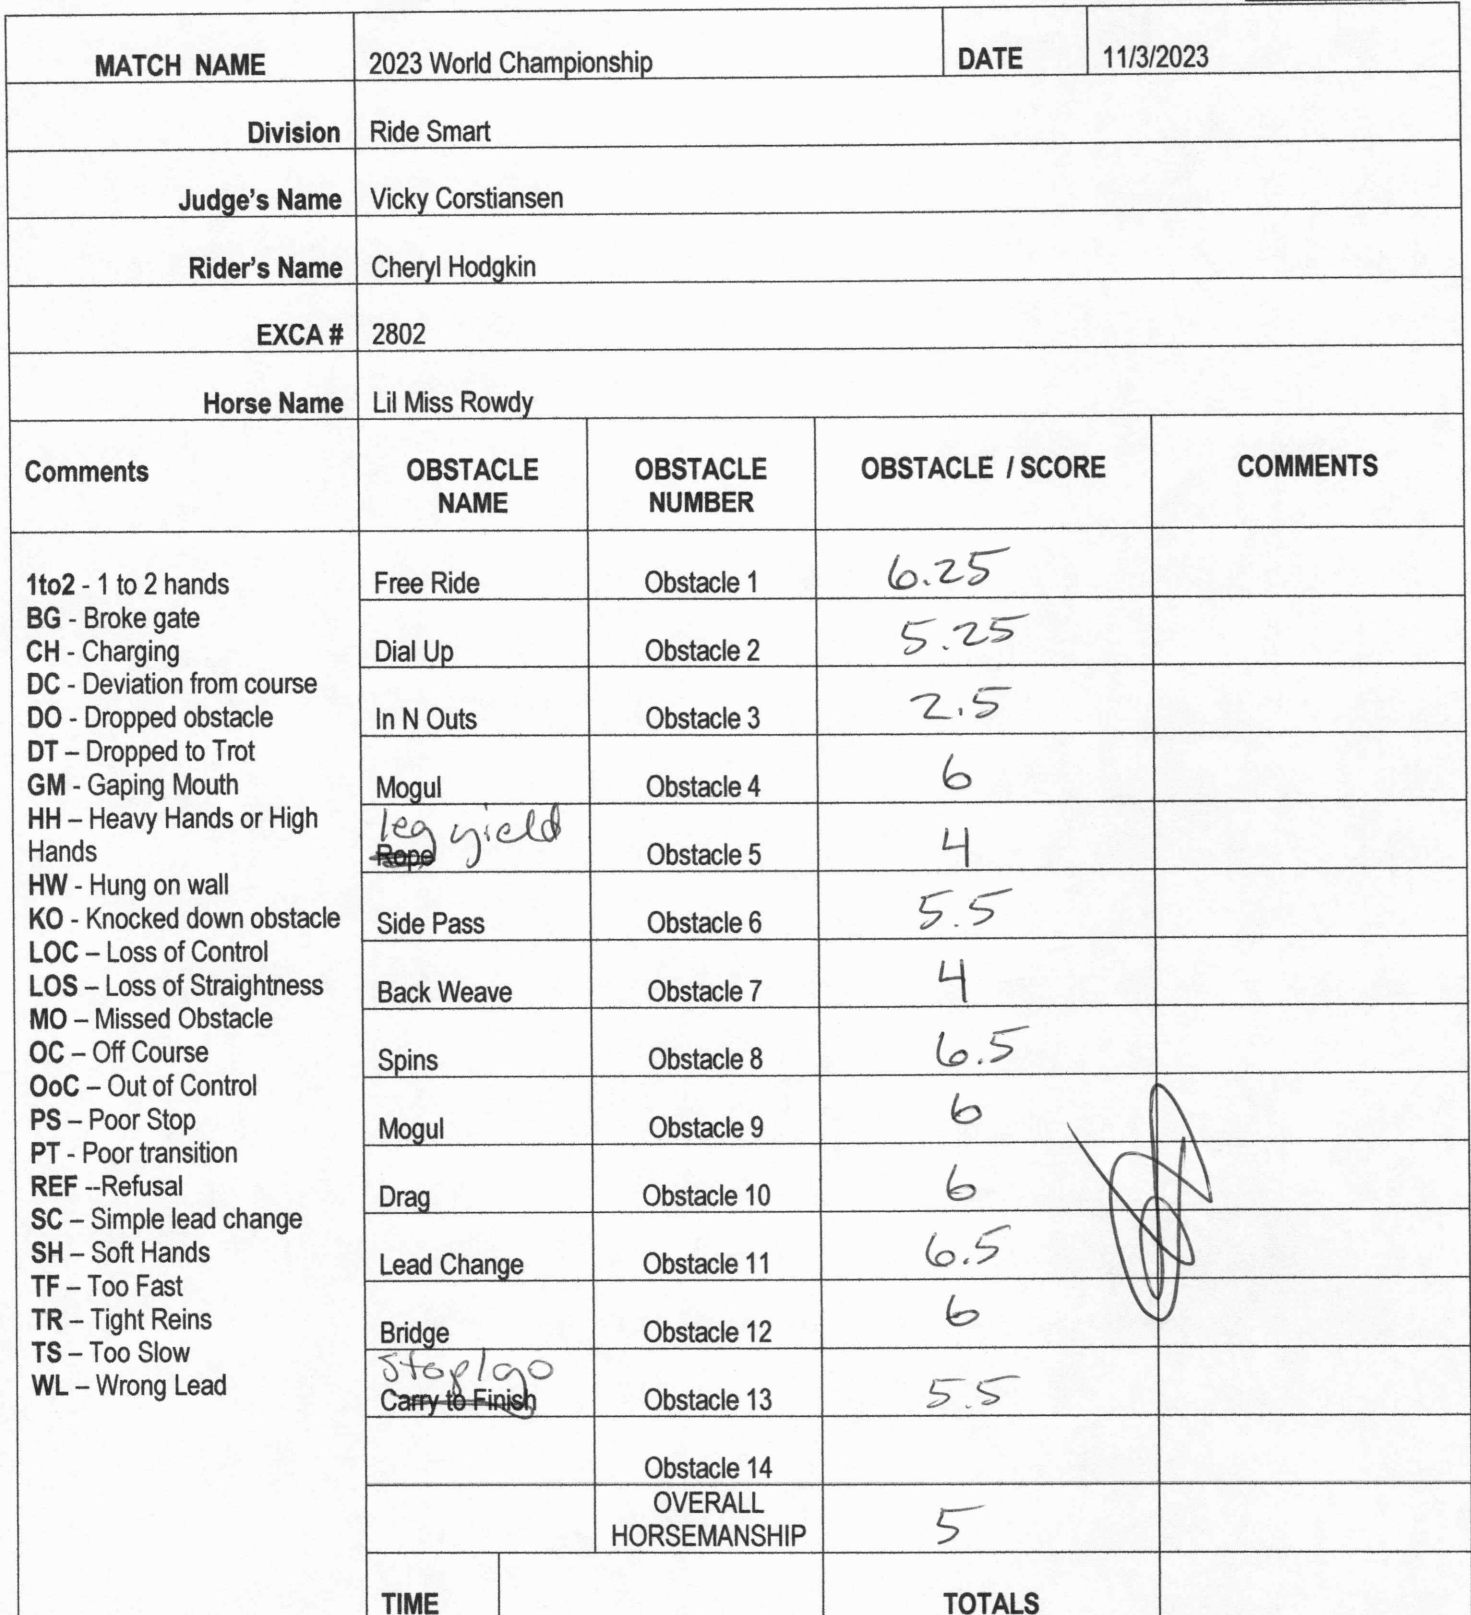 MATCH NAME 2023 World Championship DATE 11/3/2023
Division Ride Smart
Judge's Name Vicky Corstiansen
Rider's Name Cheryl Hodgkin
EXCA # 2802
Horse Name Lil Miss Rowdy
Comments OBSTACLE NAME OBSTACLE NUMBER OBSTACLE / SCORE COMMENTS
1to2 - 1 to 2 hands
BG - Broke gate
CH - Charging
DC - Deviation from course
DO - Dropped obstacle
DT – Dropped to Trot
GM - Gaping Mouth
HH – Heavy Hands or High
Hands
HW - Hung on wall
KO - Knocked down obstacle
LOC – Loss of Control
LOS – Loss of Straightness
MO – Missed Obstacle
OC – Off Course
OoC – Out of Control
PS – Poor Stop
PT - Poor transition
REF --Refusal
SC – Simple lead change
SH – Soft Hands
TF – Too Fast
TR – Tight Reins
TS – Too Slow
WL – Wrong Lead
Free Ride Obstacle 1 6.25
Dial Up Obstacle 2 5.25
In N Outs Obstacle 3 2.5
Mogul Obstacle 4 6
leg yield
Rope Obstacle 5 4
Side Pass Obstacle 6 5.5
Back Weave Obstacle 7 4
Spins Obstacle 8 6.5
Mogul Obstacle 9 6
Drag Obstacle 10 6
Lead Change Obstacle 11 6.5
Bridge Obstacle 12 6
Stop/go
Carry to Finish Obstacle 13 5.5
Obstacle 14
OVERALL
HORSEMANSHIP 5
TIME TOTALS